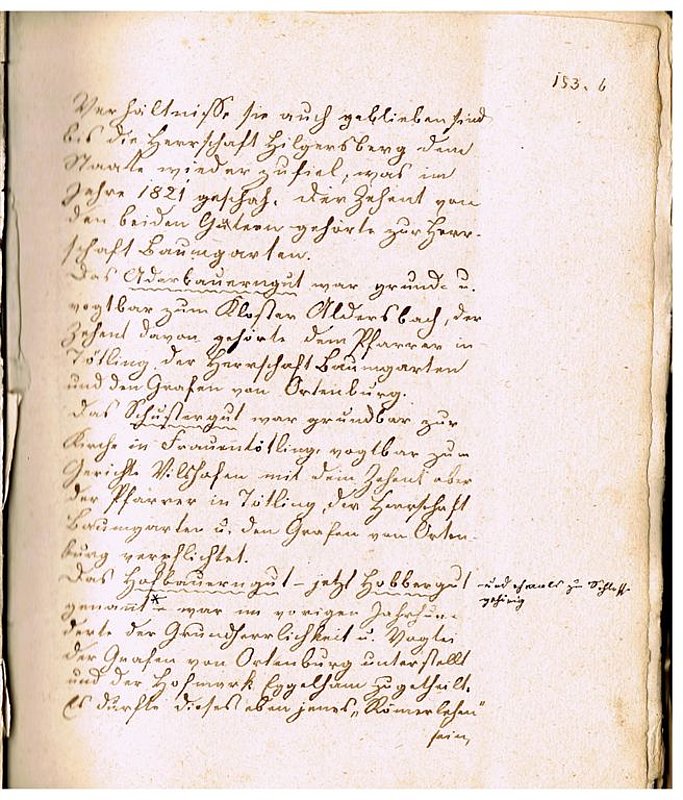 153. 6
Verhältnisse sie auch geblieben sind
bis die Herrschaft Hilgersberg dem
Staate wieder zufiel, was im
Jahre 1821 geschah. Der Zehent von
den beiden Gütern gehörte zur Herr-
schaft Baumgarten.
Das Aderbauerngut war grund- u.
vogtbar zum Kloster Aldersbach, der
Zehent davon gehörte dem Pfarrer in
Tötling, der Herrschaft Baumgarten
und den Grafen von Ortenburg.
Das Schustergut war grundbar zur
Kirche in Frauentötling, vogtbar zum
Gerichte Vilshofen mit dem Zehent aber
der Pfarrer in Tötling, der Herrschaft
Baumgarten u. den Grafen von Orten-
burg verpflichtet.
Das Hofbauerngut – jetzt Hobbergut
genannt* – war im vorigen Jahrhun-
derte der Grundherrlichkeit u. Vogtei
der Grafen von Ortenburg unterstellt
und der Hofmark Egglham zugetheilt.
Es dürfte dieses eben jenes „Römerlehen"
sein,
und ehmals zu Schloss
gehörig